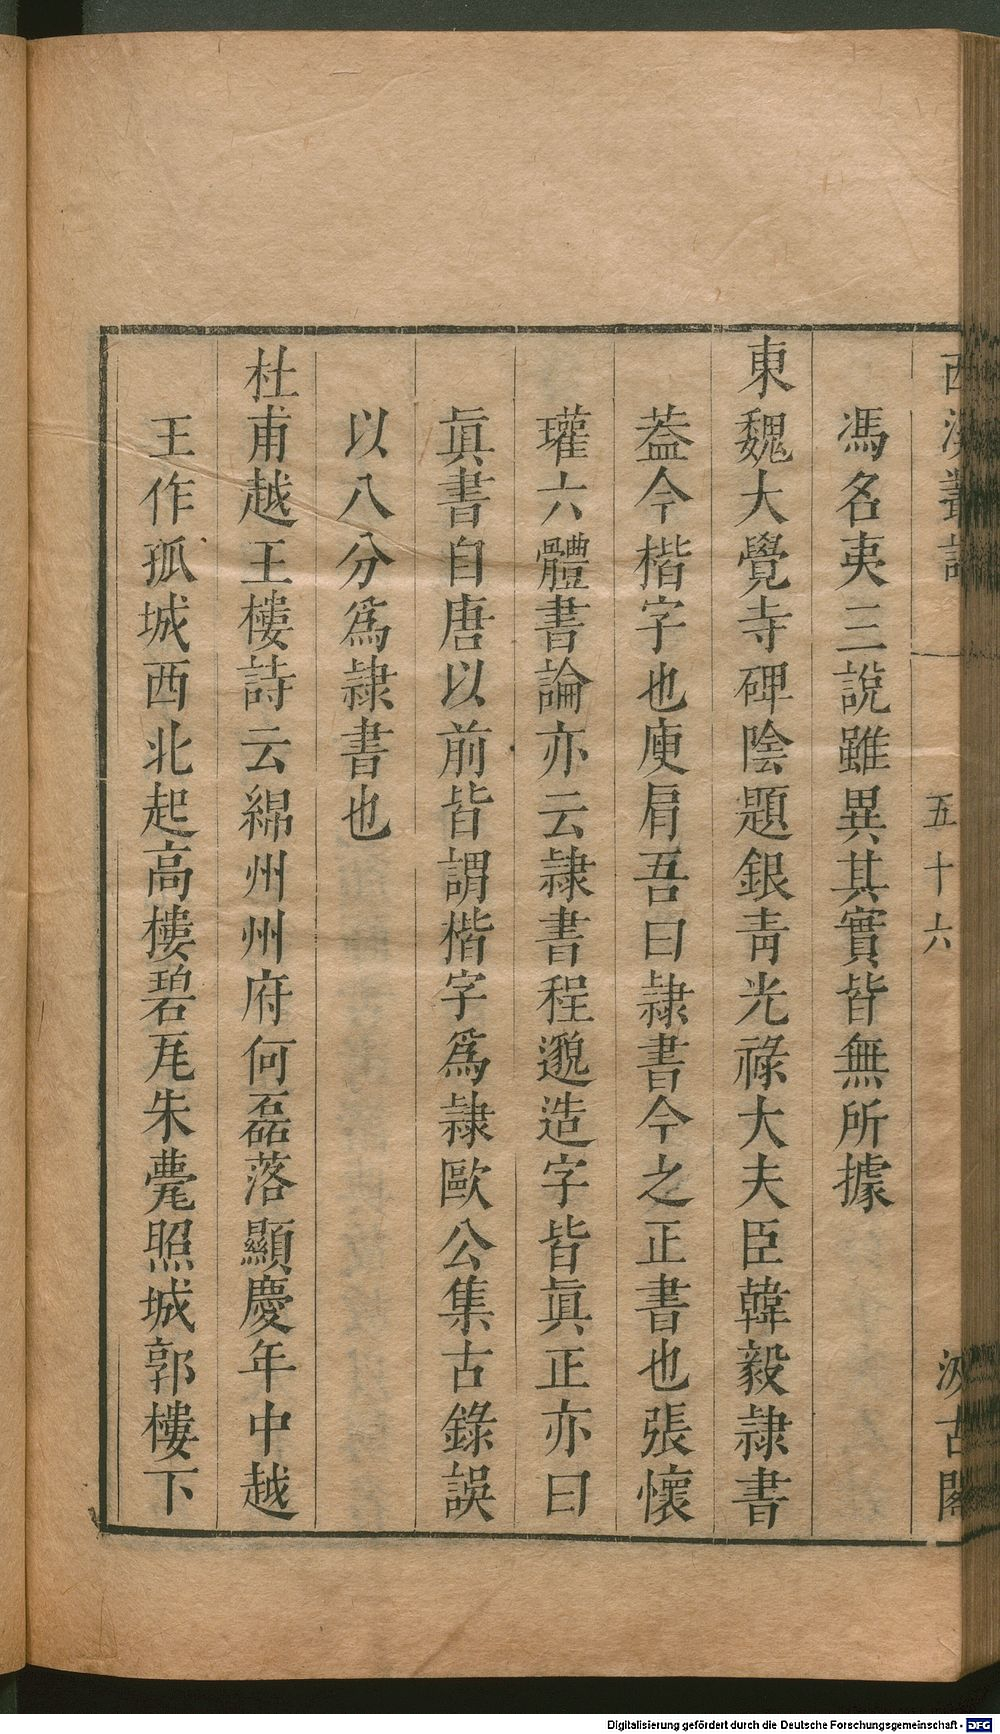 西溪叢語
五十六
汲古閣
馮名夷三說雖異其實皆無所據
東魏大覺寺碑陰題銀靑光祿大夫臣韓毅隷書
葢今楷字也庾肩吾曰隷書今之正書也張懷
瓘六體書論亦云隷書程邈造字皆眞正亦曰
眞書自唐以前皆謂楷字爲隷歐公集古錄誤
以八分爲隷書也
杜甫越王樓詩云綿州州府何磊落顯慶年中越
王作孤城西北起高樓碧瓦朱甍照城郭樓下
Digitalisierung gefördert durch die Deutsche Forschungsgemeinschaft - DFG